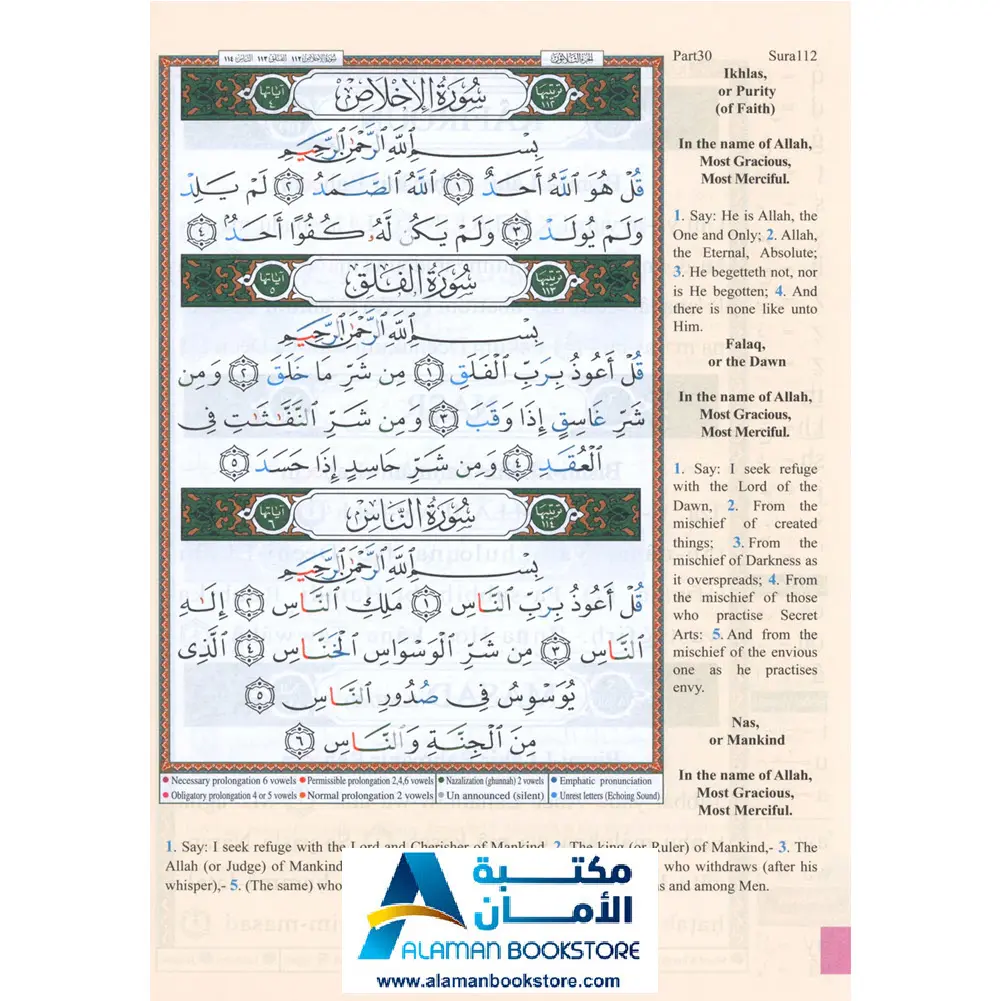 سورة الإخلاص ١١٢ الفلق ١١٣ الناس ١١٤
الجزء الثلاثون
Part30 Sura112
ترتيبها ١١٢ سُورَةُ الإِخْلَاصِ آياتها ٤
بِسْمِ ٱللَّهِ ٱلرَّحْمَٰنِ ٱلرَّحِيمِ
قُلْ هُوَ ٱللَّهُ أَحَدٌ ١ ٱللَّهُ ٱلصَّمَدُ ٢ لَمْ يَلِدْ
وَلَمْ يُولَدْ ٣ وَلَمْ يَكُن لَّهُۥ كُفُوًا أَحَدٌۢ ٤
ترتيبها ١١٣ سُورَةُ الْفَلَقِ آياتها ٥
بِسْمِ ٱللَّهِ ٱلرَّحْمَٰنِ ٱلرَّحِيمِ
قُلْ أَعُوذُ بِرَبِّ ٱلْفَلَقِ ١ مِن شَرِّ مَا خَلَقَ ٢ وَمِن
شَرِّ غَاسِقٍ إِذَا وَقَبَ ٣ وَمِن شَرِّ ٱلنَّفَّٰثَٰتِ فِى
ٱلْعُقَدِ ٤ وَمِن شَرِّ حَاسِدٍ إِذَا حَسَدَ ٥
ترتيبها ١١٤ سُورَةُ النَّاسِ آياتها ٦
بِسْمِ ٱللَّهِ ٱلرَّحْمَٰنِ ٱلرَّحِيمِ
قُلْ أَعُوذُ بِرَبِّ ٱلنَّاسِ ١ مَلِكِ ٱلنَّاسِ ٢ إِلَٰهِ
ٱلنَّاسِ ٣ مِن شَرِّ ٱلْوَسْوَاسِ ٱلْخَنَّاسِ ٤ ٱلَّذِى
يُوَسْوِسُ فِى صُدُورِ ٱلنَّاسِ ٥
مِنَ ٱلْجِنَّةِ وَٱلنَّاسِ ٦
Ikhlas,
or Purity
(of Faith)
In the name of Allah,
Most Gracious,
Most Merciful.
1. Say: He is Allah, the
One and Only; 2. Allah,
the Eternal, Absolute;
3. He begetteth not, nor
is He begotten; 4. And
there is none like unto
Him.
Falaq,
or the Dawn
In the name of Allah,
Most Gracious,
Most Merciful.
1. Say: I seek refuge
with the Lord of the
Dawn, 2. From the
mischief of created
things; 3. From the
mischief of Darkness as
it overspreads; 4. From
the mischief of those
who practise Secret
Arts: 5. And from the
mischief of the envious
one as he practises
envy.
Nas,
or Mankind
In the name of Allah,
Most Gracious,
Most Merciful.
Necessary prolongation 6 vowels Permissible prolongation 2,4,6 vowels Nazalization (ghunnah) 2 vowels Emphatic pronunciation
Obligatory prolongation 4 or 5 vowels Normal prolongation 2 vowels Un announced (silent) Unrest letters (Echoing Sound)
1. Say: I seek refuge with the Lord and Cherisher of Mankind, 2. The king (or Ruler) of Mankind,- 3. The
Allah (or Judge) of Mankind who withdraws (after his
whisper),- 5. (The same) who s and among Men.
مكتبة
الأمان
ALAMAN BOOKSTORE
www.alamanbookstore.com